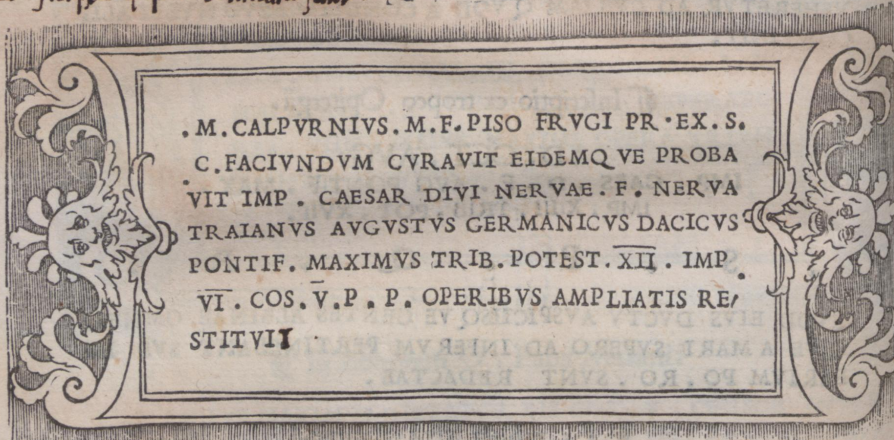 . M. CALPVRNIVS. M. F. PISO FRVGI PR · EX. S.
C. FACIVNDVM CVRAVIT EIDEMQVE PROBA
VIT IMP. CAESAR DIVI NERVAE. F. NERVA
TRAIANVS AVGVSTVS GERMANICVS DACICVS
PONTIF. MAXIMVS TRIB. POTEST. X̅I̅I̅. IMP.
V̅I̅. COS. V̅. P. P. OPERIBVS AMPLIATIS RE/
STITVIT